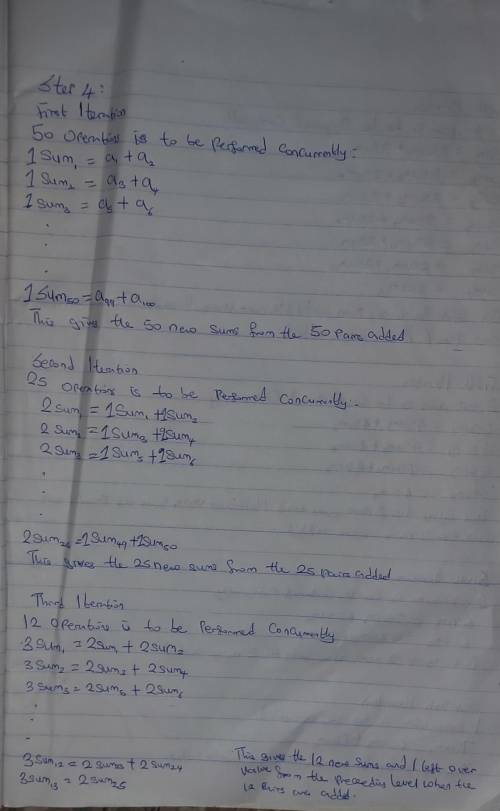 Step 4:
First Iteration
50 operations is to be Performed Concurrently:-
1Sum₁ = a₁ + a₂
1Sum₂ = a₃ + a₄
1Sum₃ = a₅ + a₆
.
.
.
1Sum₅₀ = a₉₉ + a₁₀₀
This gives the 50 new sums from the 50 Pairs added
Second Iteration
25 operations is to be Performed Concurrently:-
2Sum₁ = 1Sum₁ + 1Sum₂
2Sum₂ = 1Sum₃ + 1Sum₄
2Sum₃ = 1Sum₅ + 1Sum₆
.
.
.
2Sum₂₅ = 1Sum₄₉ + 1Sum₅₀
This gives the 25 new sums from the 25 pairs added
Third Iteration
12 Operations is to be Performed Concurrently
3Sum₁ = 2Sum₁ + 2Sum₂
3Sum₂ = 2Sum₃ + 2Sum₄
3Sum₃ = 2Sum₅ + 2Sum₆
.
.
.
3Sum₁₂ = 2Sum₂₃ + 2Sum₂₄
3Sum₁₃ = 2Sum₂₅
This gives the 12 new sums and 1 left over
value from the preceding level when the
12 Pairs was added.